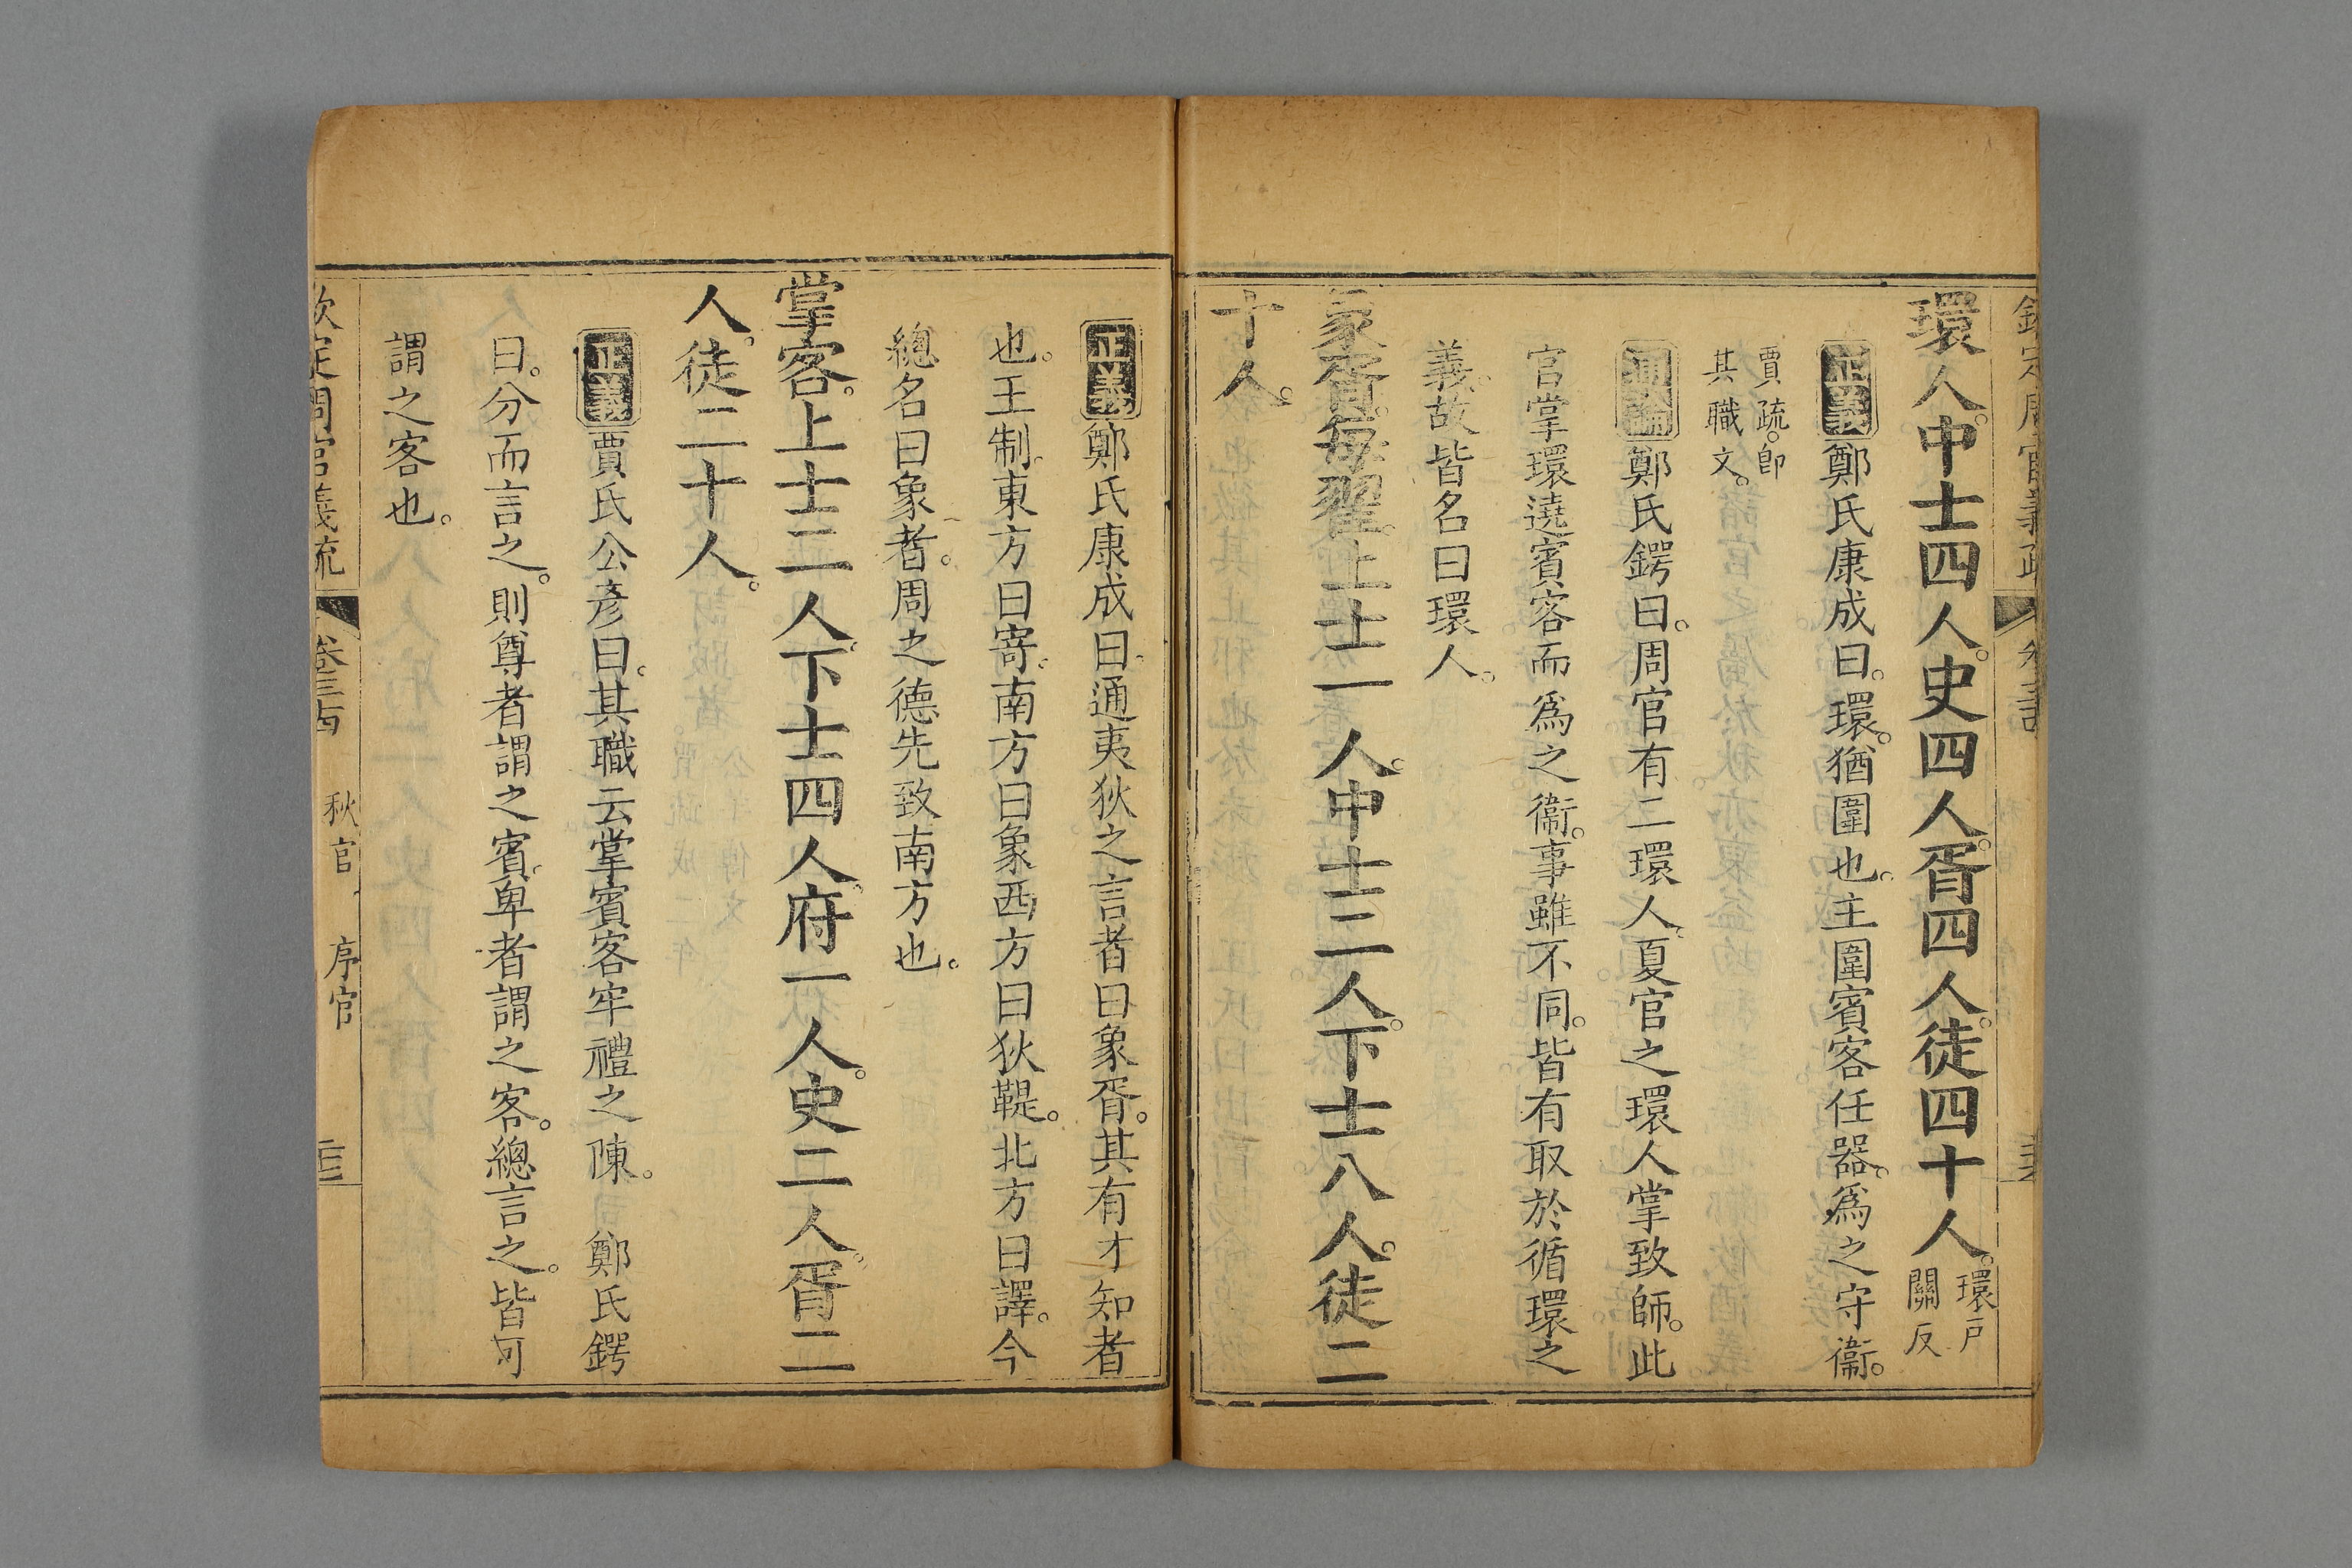 環人。中士四人。史四人。胥四人。徒四十人。環戶關反
正義鄭氏康成曰。環。猶圍也。主圍賓客任器。爲之守衞。
賈疏。卽其職文。
通論鄭氏鍔曰。周官有二環人。夏官之環人掌致師。此
官掌環遶賓客而爲之衞。事雖不同。皆有取於循環之
義。故皆名曰環人。
象胥。每翟。上士一人。中士二人。下士八人。徒二
十人。
正義鄭氏康成曰。通夷狄之言者曰象胥。其有才知者
也。王制。東方曰寄。南方曰象。西方曰狄鞮。北方曰譯。今
總名曰象者。周之德先致南方也。
掌客。上士二人。下士四人。府一人。史二人。胥二
人。徒二十人。
正義賈氏公彥曰。其職云掌賓客牢禮之陳。 鄭氏鍔
曰。分而言之。則尊者謂之賓。卑者謂之客。總言之。皆可
謂之客也。
欽定周官義疏 卷三十四 秋官 序官